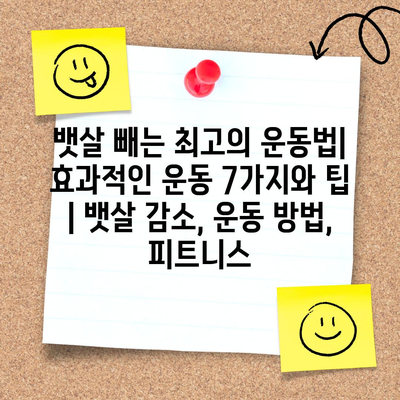 뱃살 빼는 최고의 운동법|
효과적인 운동 7가지와 팁
| 뱃살 감소, 운동 방법,
피트니스